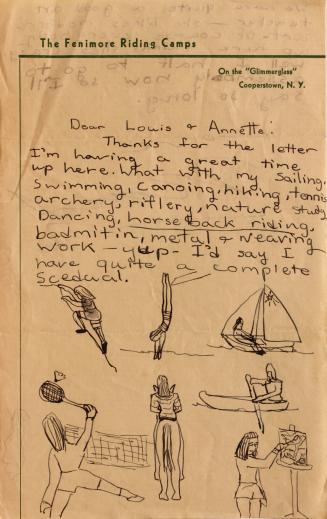 The Fenimore Riding Camps
On the "Glimmerglass"
Cooperstown, N. Y.
Dear Lowis & Annette:
Thanks for the letter
I'm having a great time
up here. What with my Sailing,
Swimming, Canoing, hiking, tennis
archery, riflery, nature study
Dancing, horseback riding,
badmitin, metal & weaving
work — yup - I'd say I
have quite a complete
scedual.